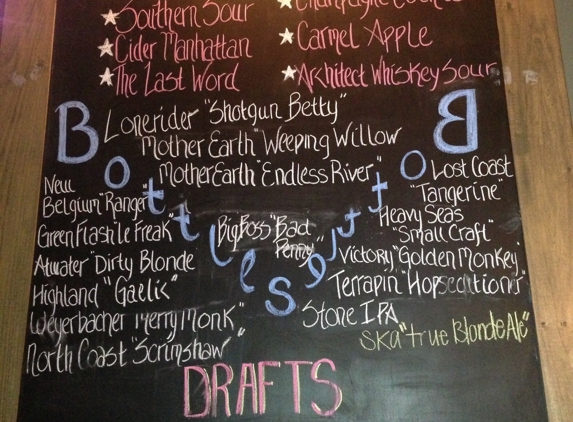 ★ Southern Sour
★ Cider Manhattan
★ The Last Word
★ Champagne
★ Carmel Apple
★ Architect Whiskey Sour
Bottles
Bottles
Lonerider "Shotgun Betty"
Mother Earth "Weeping Willow
Mother Earth "Endless River"
New
Belgium "Ranger"
Green Flash "le Freak"
Atwater "Dirty Blonde
Highland "Gaelic"
Weyerbacher Merry Monk"
North Coast "Scrimshaw"
Big Boss "Bad
Penny"
Lost Coast
"Tangerine"
Heavy Seas
"Small Craft"
Victory "Golden Monkey"
Terrapin "Hopsecutioner"
Stone IPA
Ska "true Blonde Ale"
DRAFTS